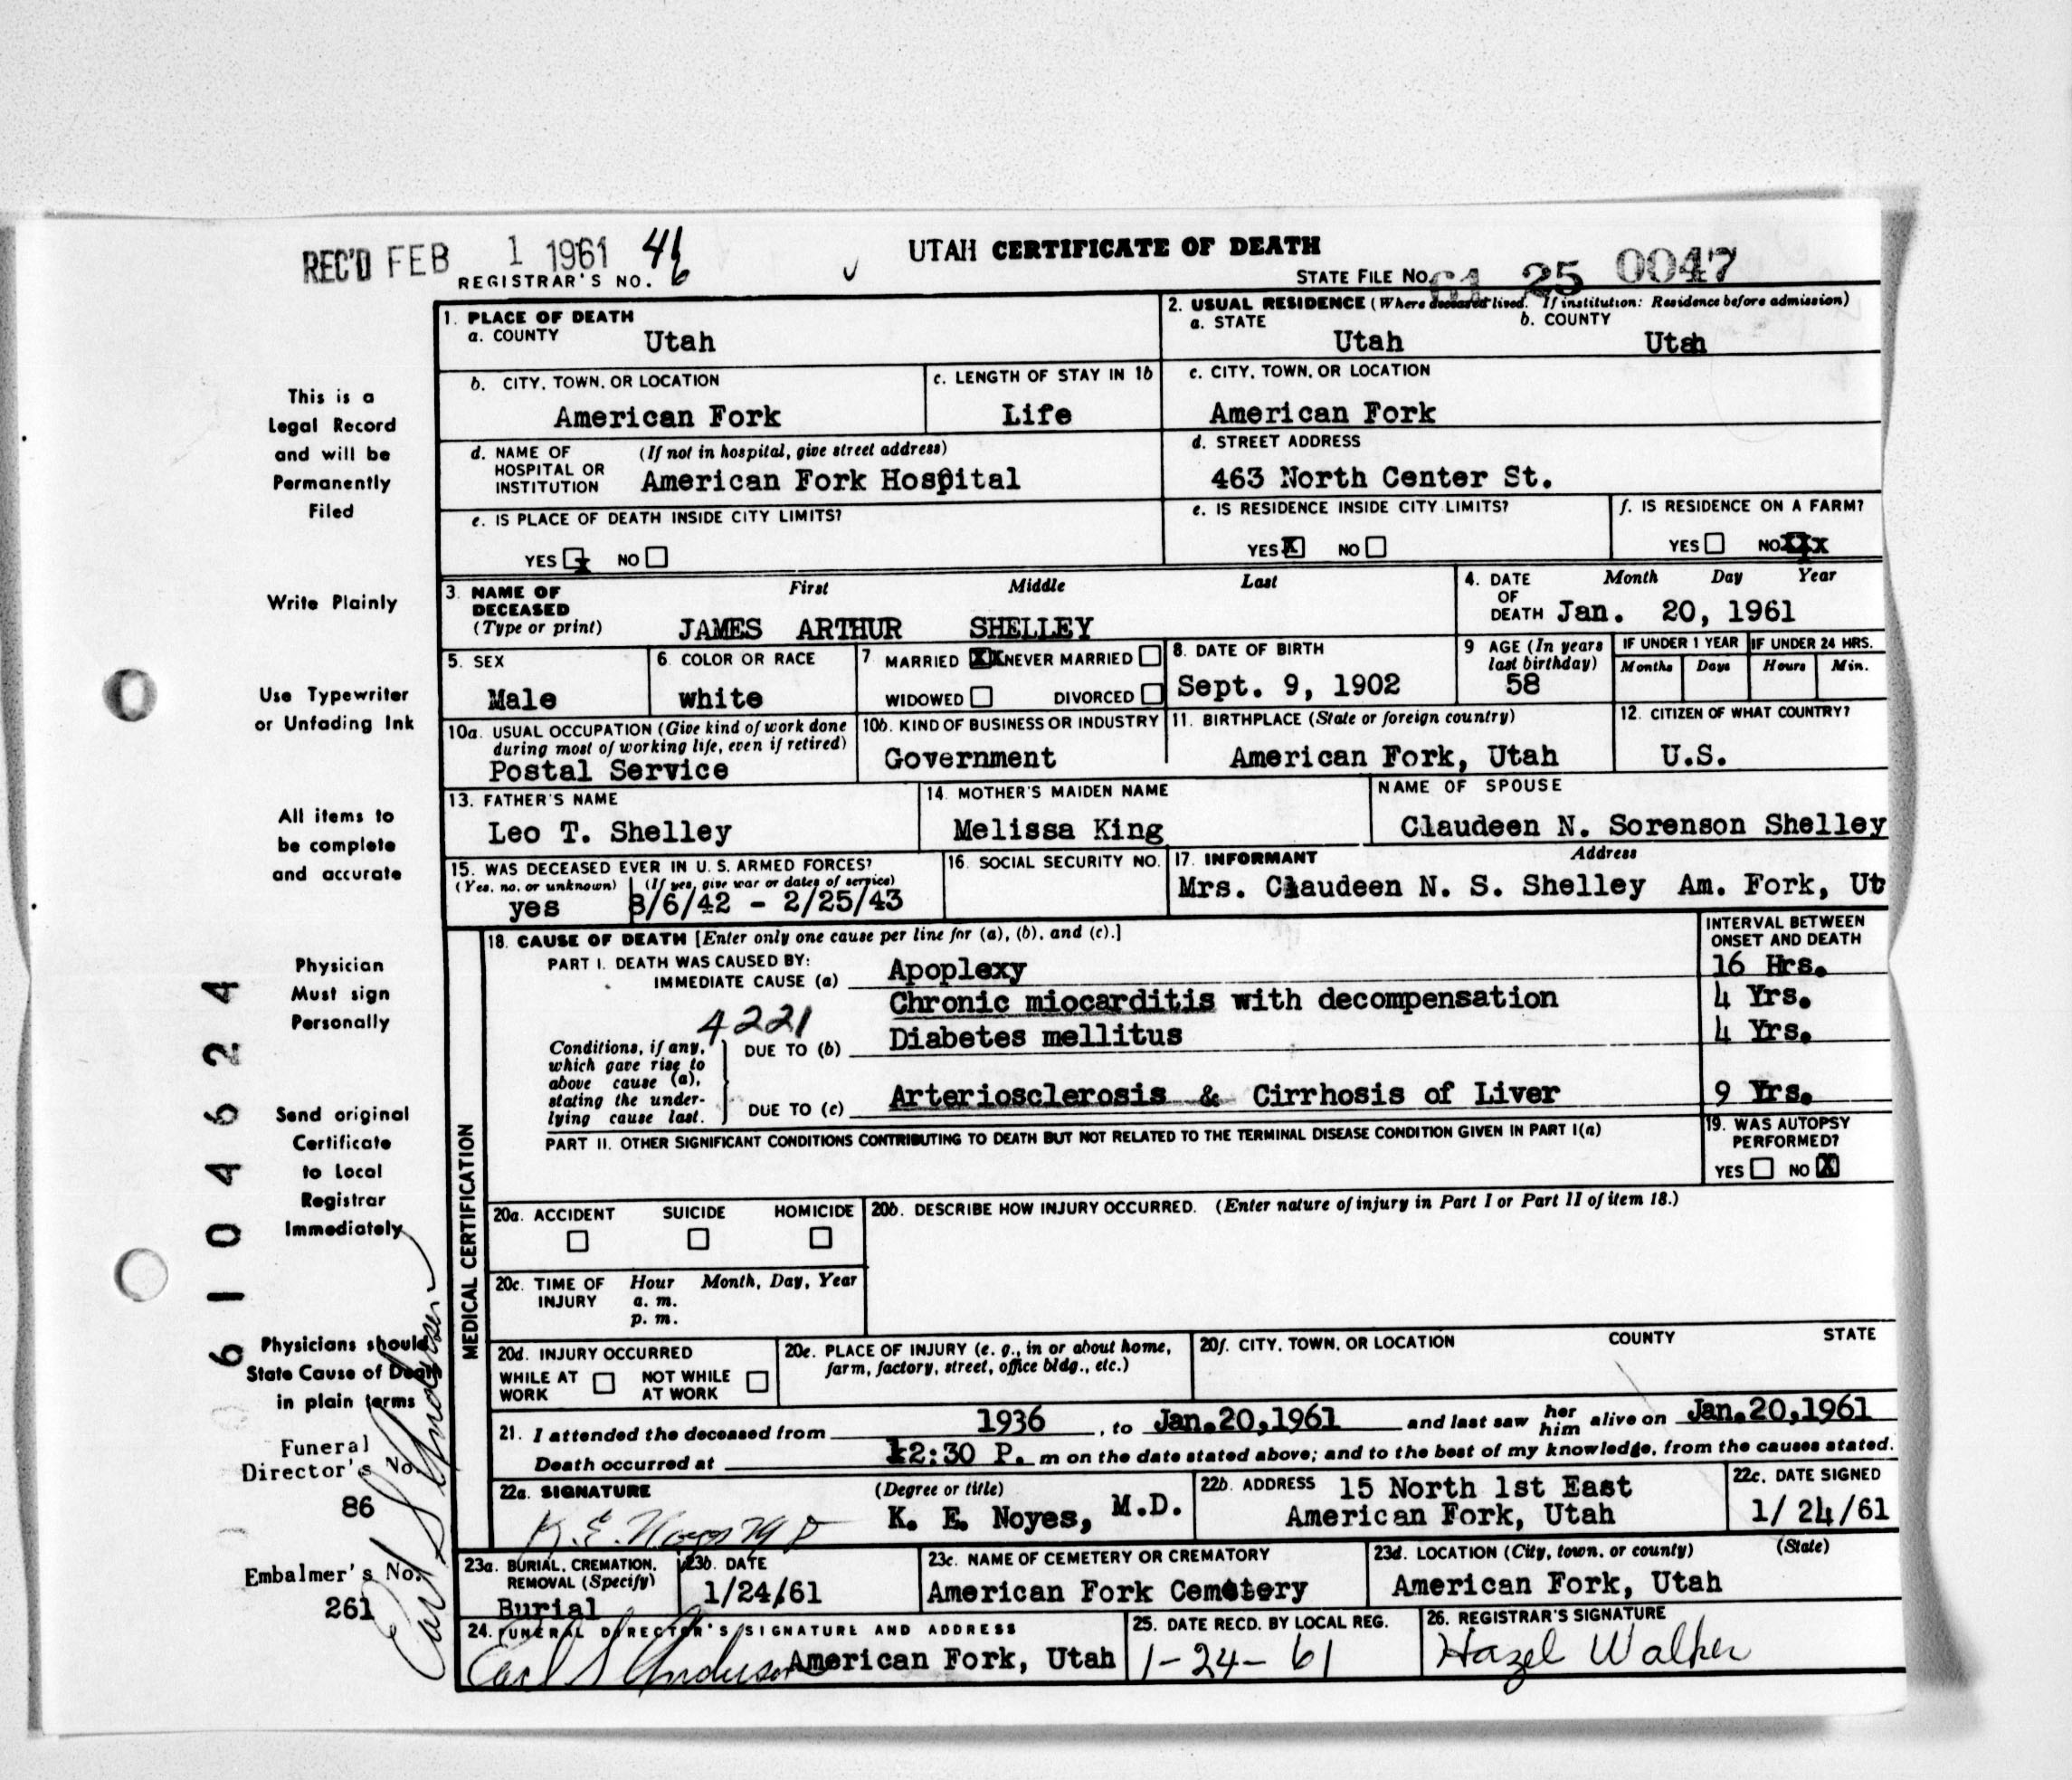 REC'D FEB 1 1961 46
UTAH CERTIFICATE OF DEATH
REGISTRAR'S NO.
STATE FILE NO. 61 25 0047
1. PLACE OF DEATH
a. COUNTY Utah
2. USUAL RESIDENCE (Where deceased lived. If institution: Residence before admission)
a. STATE Utah b. COUNTY Utah
b. CITY, TOWN, OR LOCATION American Fork
c. LENGTH OF STAY IN 1b Life
c. CITY, TOWN, OR LOCATION American Fork
d. NAME OF HOSPITAL OR INSTITUTION (If not in hospital, give street address) American Fork Hospital
d. STREET ADDRESS 463 North Center St.
e. IS PLACE OF DEATH INSIDE CITY LIMITS?
YES x NO
e. IS RESIDENCE INSIDE CITY LIMITS?
YES X NO
f. IS RESIDENCE ON A FARM?
YES NO XXX
3. NAME OF DECEASED (Type or print)
First Middle Last
JAMES ARTHUR SHELLEY
4. DATE OF DEATH Month Day Year
Jan. 20, 1961
5. SEX Male
6. COLOR OR RACE white
7. MARRIED XX NEVER MARRIED
WIDOWED DIVORCED
8. DATE OF BIRTH Sept. 9, 1902
9 AGE (In years last birthday) 58
IF UNDER 1 YEAR Months Days
IF UNDER 24 HRS. Hours Min.
10a. USUAL OCCUPATION (Give kind of work done during most of working life, even if retired)
Postal Service
10b. KIND OF BUSINESS OR INDUSTRY Government
11. BIRTHPLACE (State or foreign country) American Fork, Utah
12. CITIZEN OF WHAT COUNTRY? U.S.
13. FATHER'S NAME Leo T. Shelley
14. MOTHER'S MAIDEN NAME Melissa King
NAME OF SPOUSE Claudeen N. Sorenson Shelley
15. WAS DECEASED EVER IN U. S. ARMED FORCES?
(Yes, no, or unknown) (If yes, give war or dates of service)
yes 8/6/42 - 2/25/43
16. SOCIAL SECURITY NO.
17. INFORMANT Address
Mrs. Claudeen N. S. Shelley Am. Fork, Ut
MEDICAL CERTIFICATION
18. CAUSE OF DEATH [Enter only one cause per line for (a), (b), and (c).]
INTERVAL BETWEEN ONSET AND DEATH
PART I. DEATH WAS CAUSED BY:
IMMEDIATE CAUSE (a) Apoplexy 16 Hrs.
Chronic miocarditis with decompensation 4 Yrs.
4221
Conditions, if any, which gave rise to above cause (a), stating the underlying cause last.
DUE TO (b) Diabetes mellitus 4 Yrs.
DUE TO (c) Arteriosclerosis & Cirrhosis of Liver 9 Yrs.
PART II. OTHER SIGNIFICANT CONDITIONS CONTRIBUTING TO DEATH BUT NOT RELATED TO THE TERMINAL DISEASE CONDITION GIVEN IN PART I(a)
19. WAS AUTOPSY PERFORMED?
YES NO X
20a. ACCIDENT SUICIDE HOMICIDE
20b. DESCRIBE HOW INJURY OCCURRED. (Enter nature of injury in Part I or Part II of item 18.)
20c. TIME OF INJURY Hour Month, Day, Year
a. m.
p. m.
20d. INJURY OCCURRED
WHILE AT WORK NOT WHILE AT WORK
20e. PLACE OF INJURY (e. g., in or about home, farm, factory, street, office bldg., etc.)
20f. CITY, TOWN, OR LOCATION COUNTY STATE
21. I attended the deceased from 1936, to Jan.20,1961 and last saw her him alive on Jan.20,1961
Death occurred at 12:30 P. m on the date stated above; and to the best of my knowledge, from the causes stated.
22a. SIGNATURE (Degree or title)
K. E. Noyes M D K. E. Noyes, M.D.
22b. ADDRESS 15 North 1st East
American Fork, Utah
22c. DATE SIGNED 1/24/61
23a. BURIAL, CREMATION, REMOVAL (Specify) Burial
23b. DATE 1/24/61
23c. NAME OF CEMETERY OR CREMATORY American Fork Cemetery
23d. LOCATION (City, town, or county) (State)
American Fork, Utah
24. FUNERAL DIRECTOR'S SIGNATURE AND ADDRESS
Carl S Anderson American Fork, Utah
25. DATE RECD. BY LOCAL REG. 1-24-61
26. REGISTRAR'S SIGNATURE Hazel Walker
This is a
Legal Record
and will be
Permanently
Filed
Write Plainly
Use Typewriter
or Unfading Ink
All items to
be complete
and accurate
Physician
Must sign
Personally
Send original
Certificate
to Local
Registrar
Immediately
Physicians should
State Cause of Death
in plain terms
Funeral
Director's No.
86
Embalmer's No.
261
Carl S Anderson
6104624